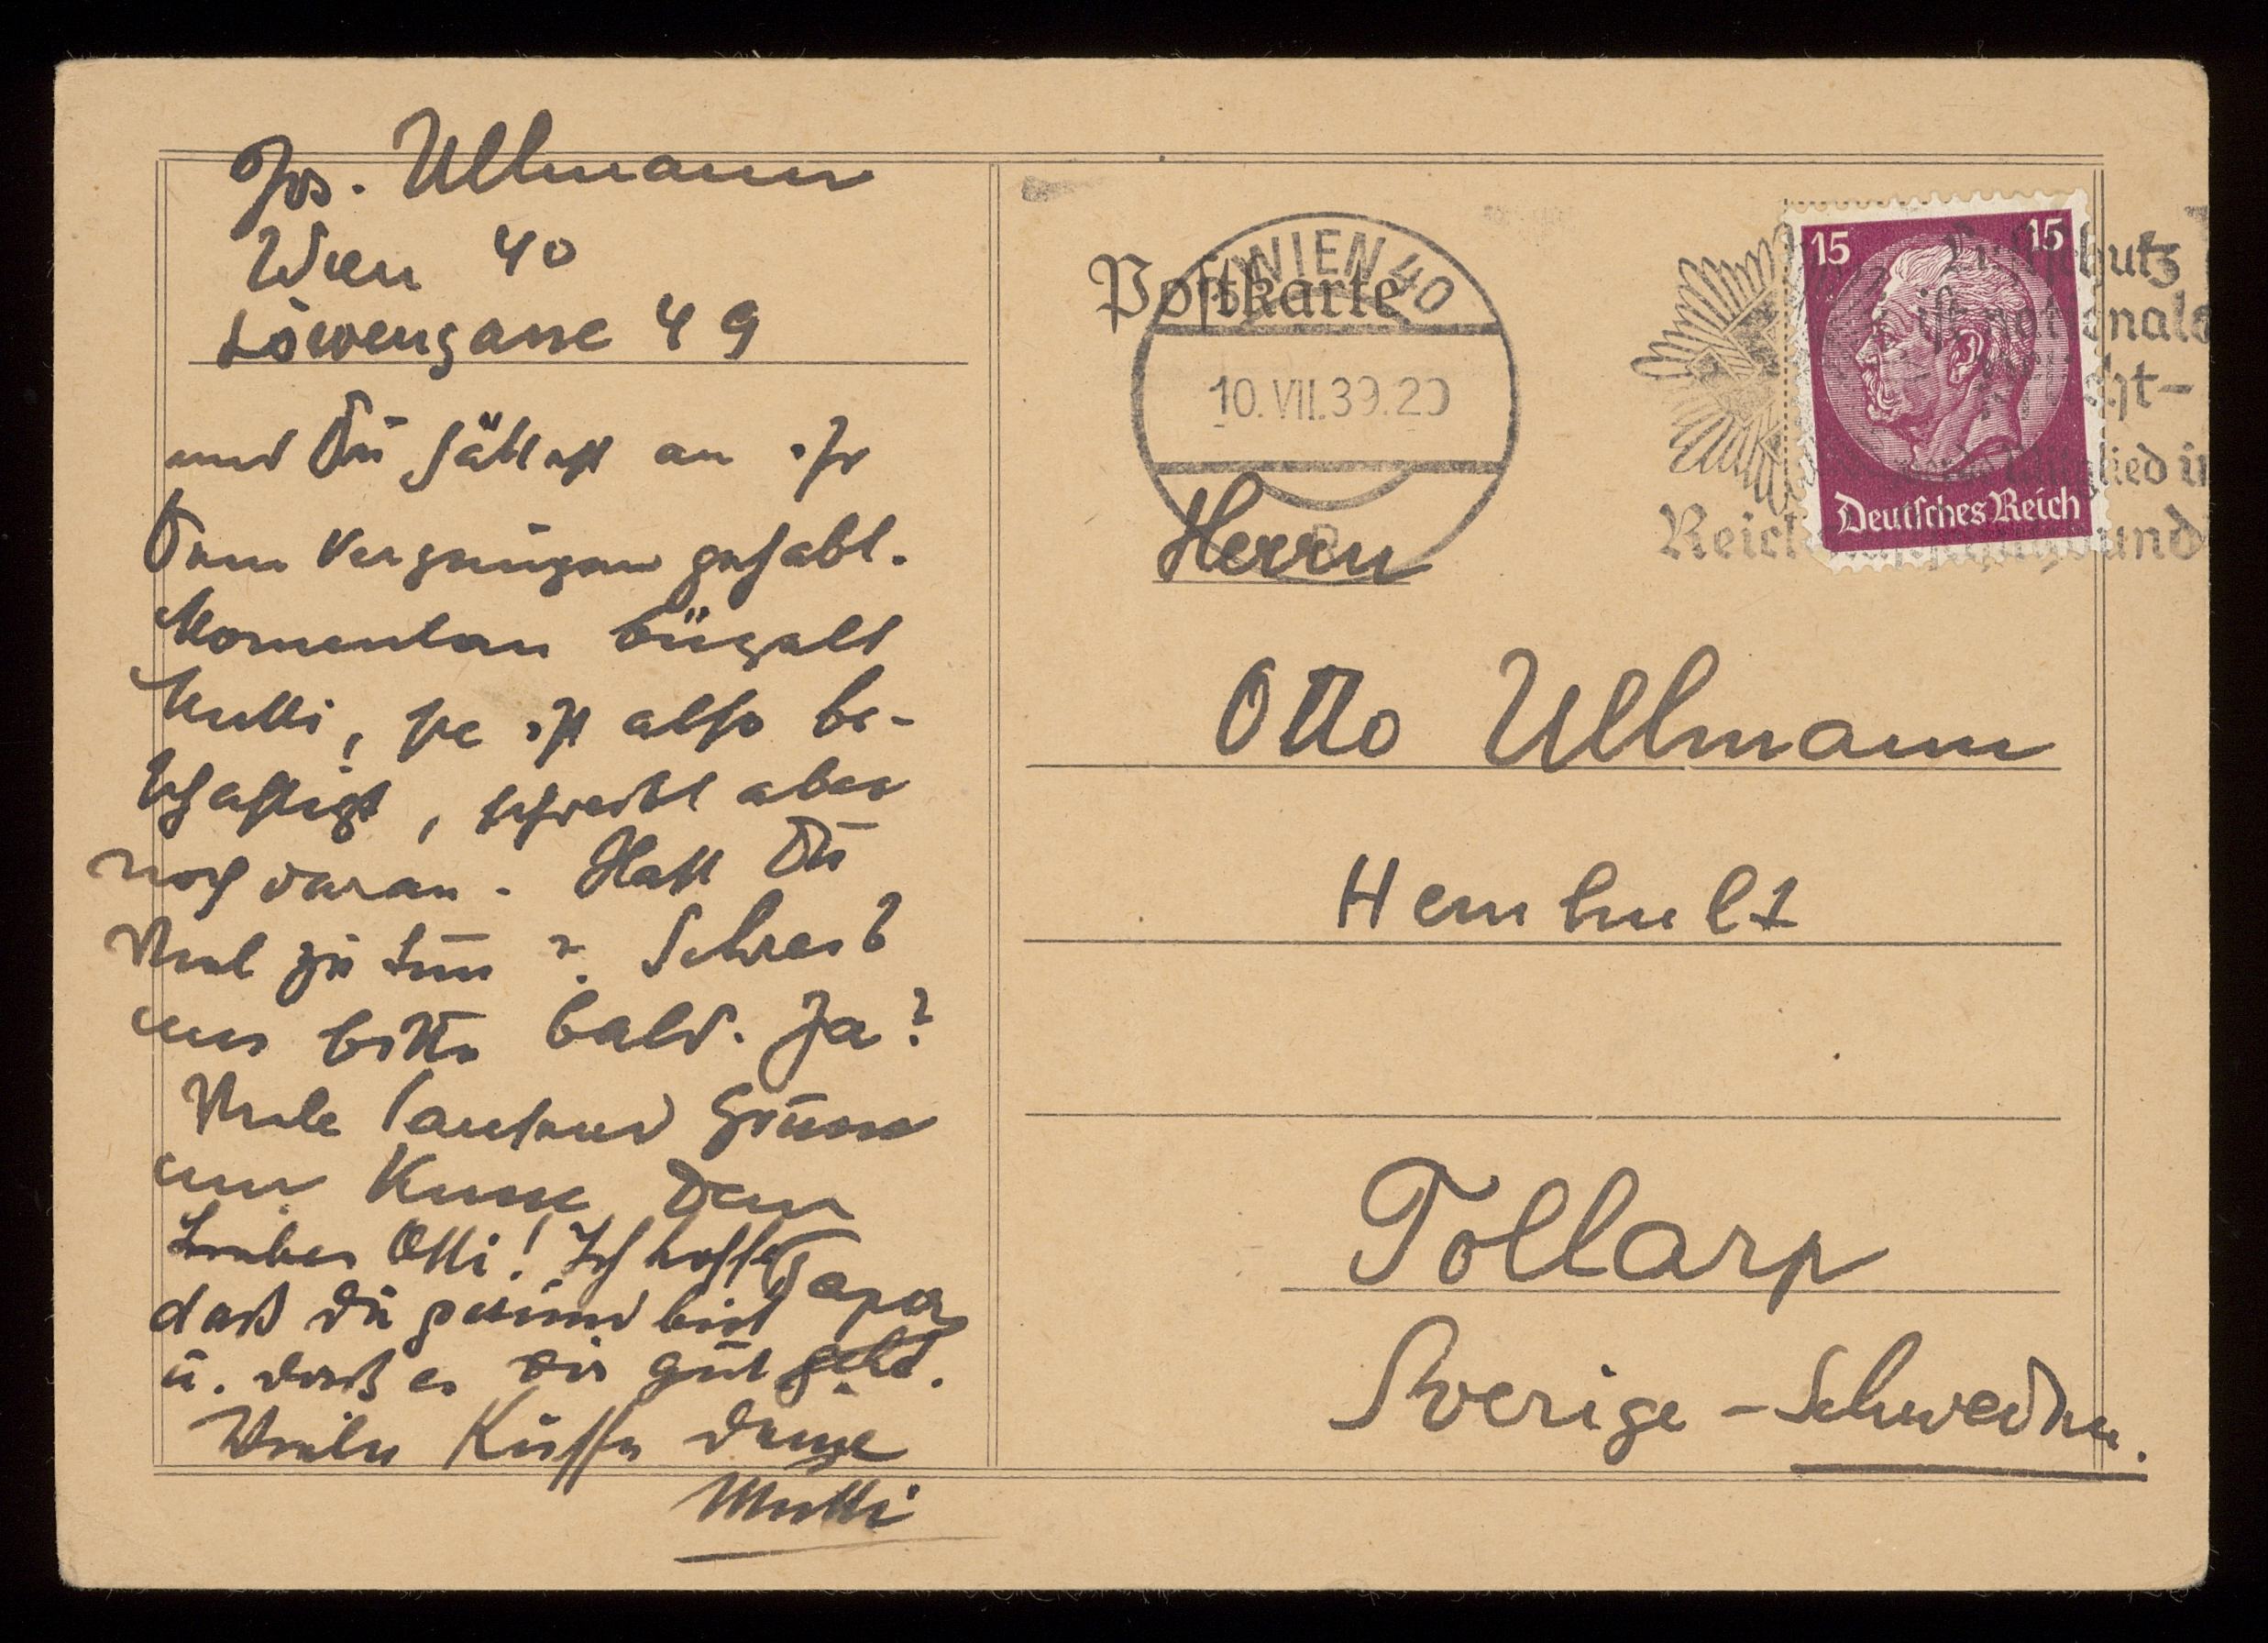 Jos. Ullmann
Wien 40
Löwengasse 49
und Du hättest an ihr
Dein Vergnügen gehabt.
Momentan bügelt
Mutti, sie ist also be-
schäftigt, schreibt aber
noch daran. Hast Du
Viel zu tun? Schreib
uns bitte bald. Ja?
Viele tausend Grüsse
und Küsse Dein
Papa
Lieber Otti! Ich hoffe
daß Du gesund bist
u. daß es Dir gut geht.
Viele Küsse Deine
Mutti
Postkarte
WIEN 40
10.VII.39.20
15 15
Deutsches Reich
Luftschutz
ist nationale
Pflicht-
Mitglied i
Reichsluftschutzbund
Herrn
Otto Ullmann
Hemhult
Tollarp
Sverige - Schweden.